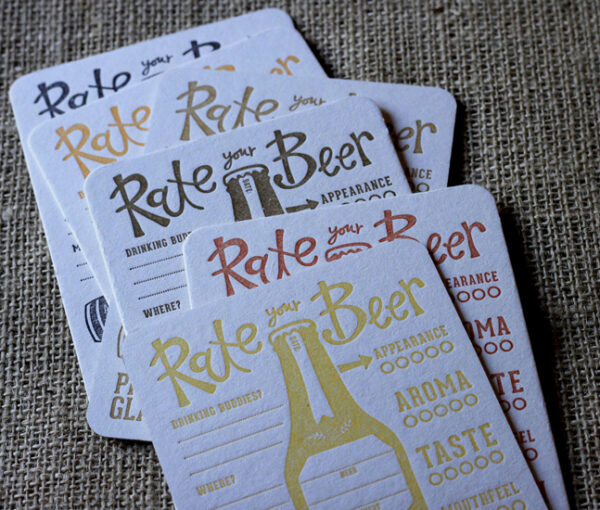 Rate your B
Rate B
Rate your
Rate your Beer
DATE
APPEARANCE
DRINKING BUDDIES?
WHERE?
GLA
Rate your Beer
APPEARANCE
AROMA
TASTE
MOUTHFEEL
Rate your Beer
DATE
APPEARANCE
DRINKING BUDDIES?
AROMA
TASTE
WHERE?
WHEN
MOUTHFEEL